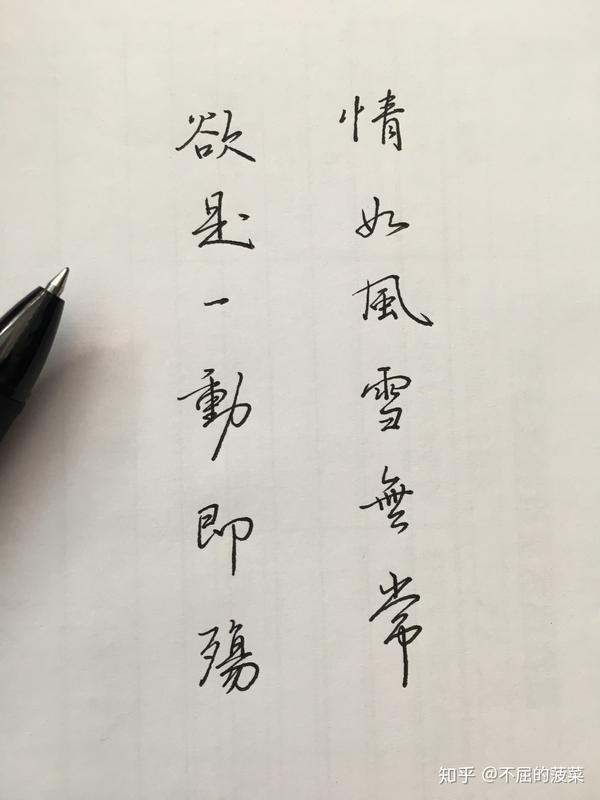 情如風雪無常
欲是一動即殤
知乎 @不屈的菠菜